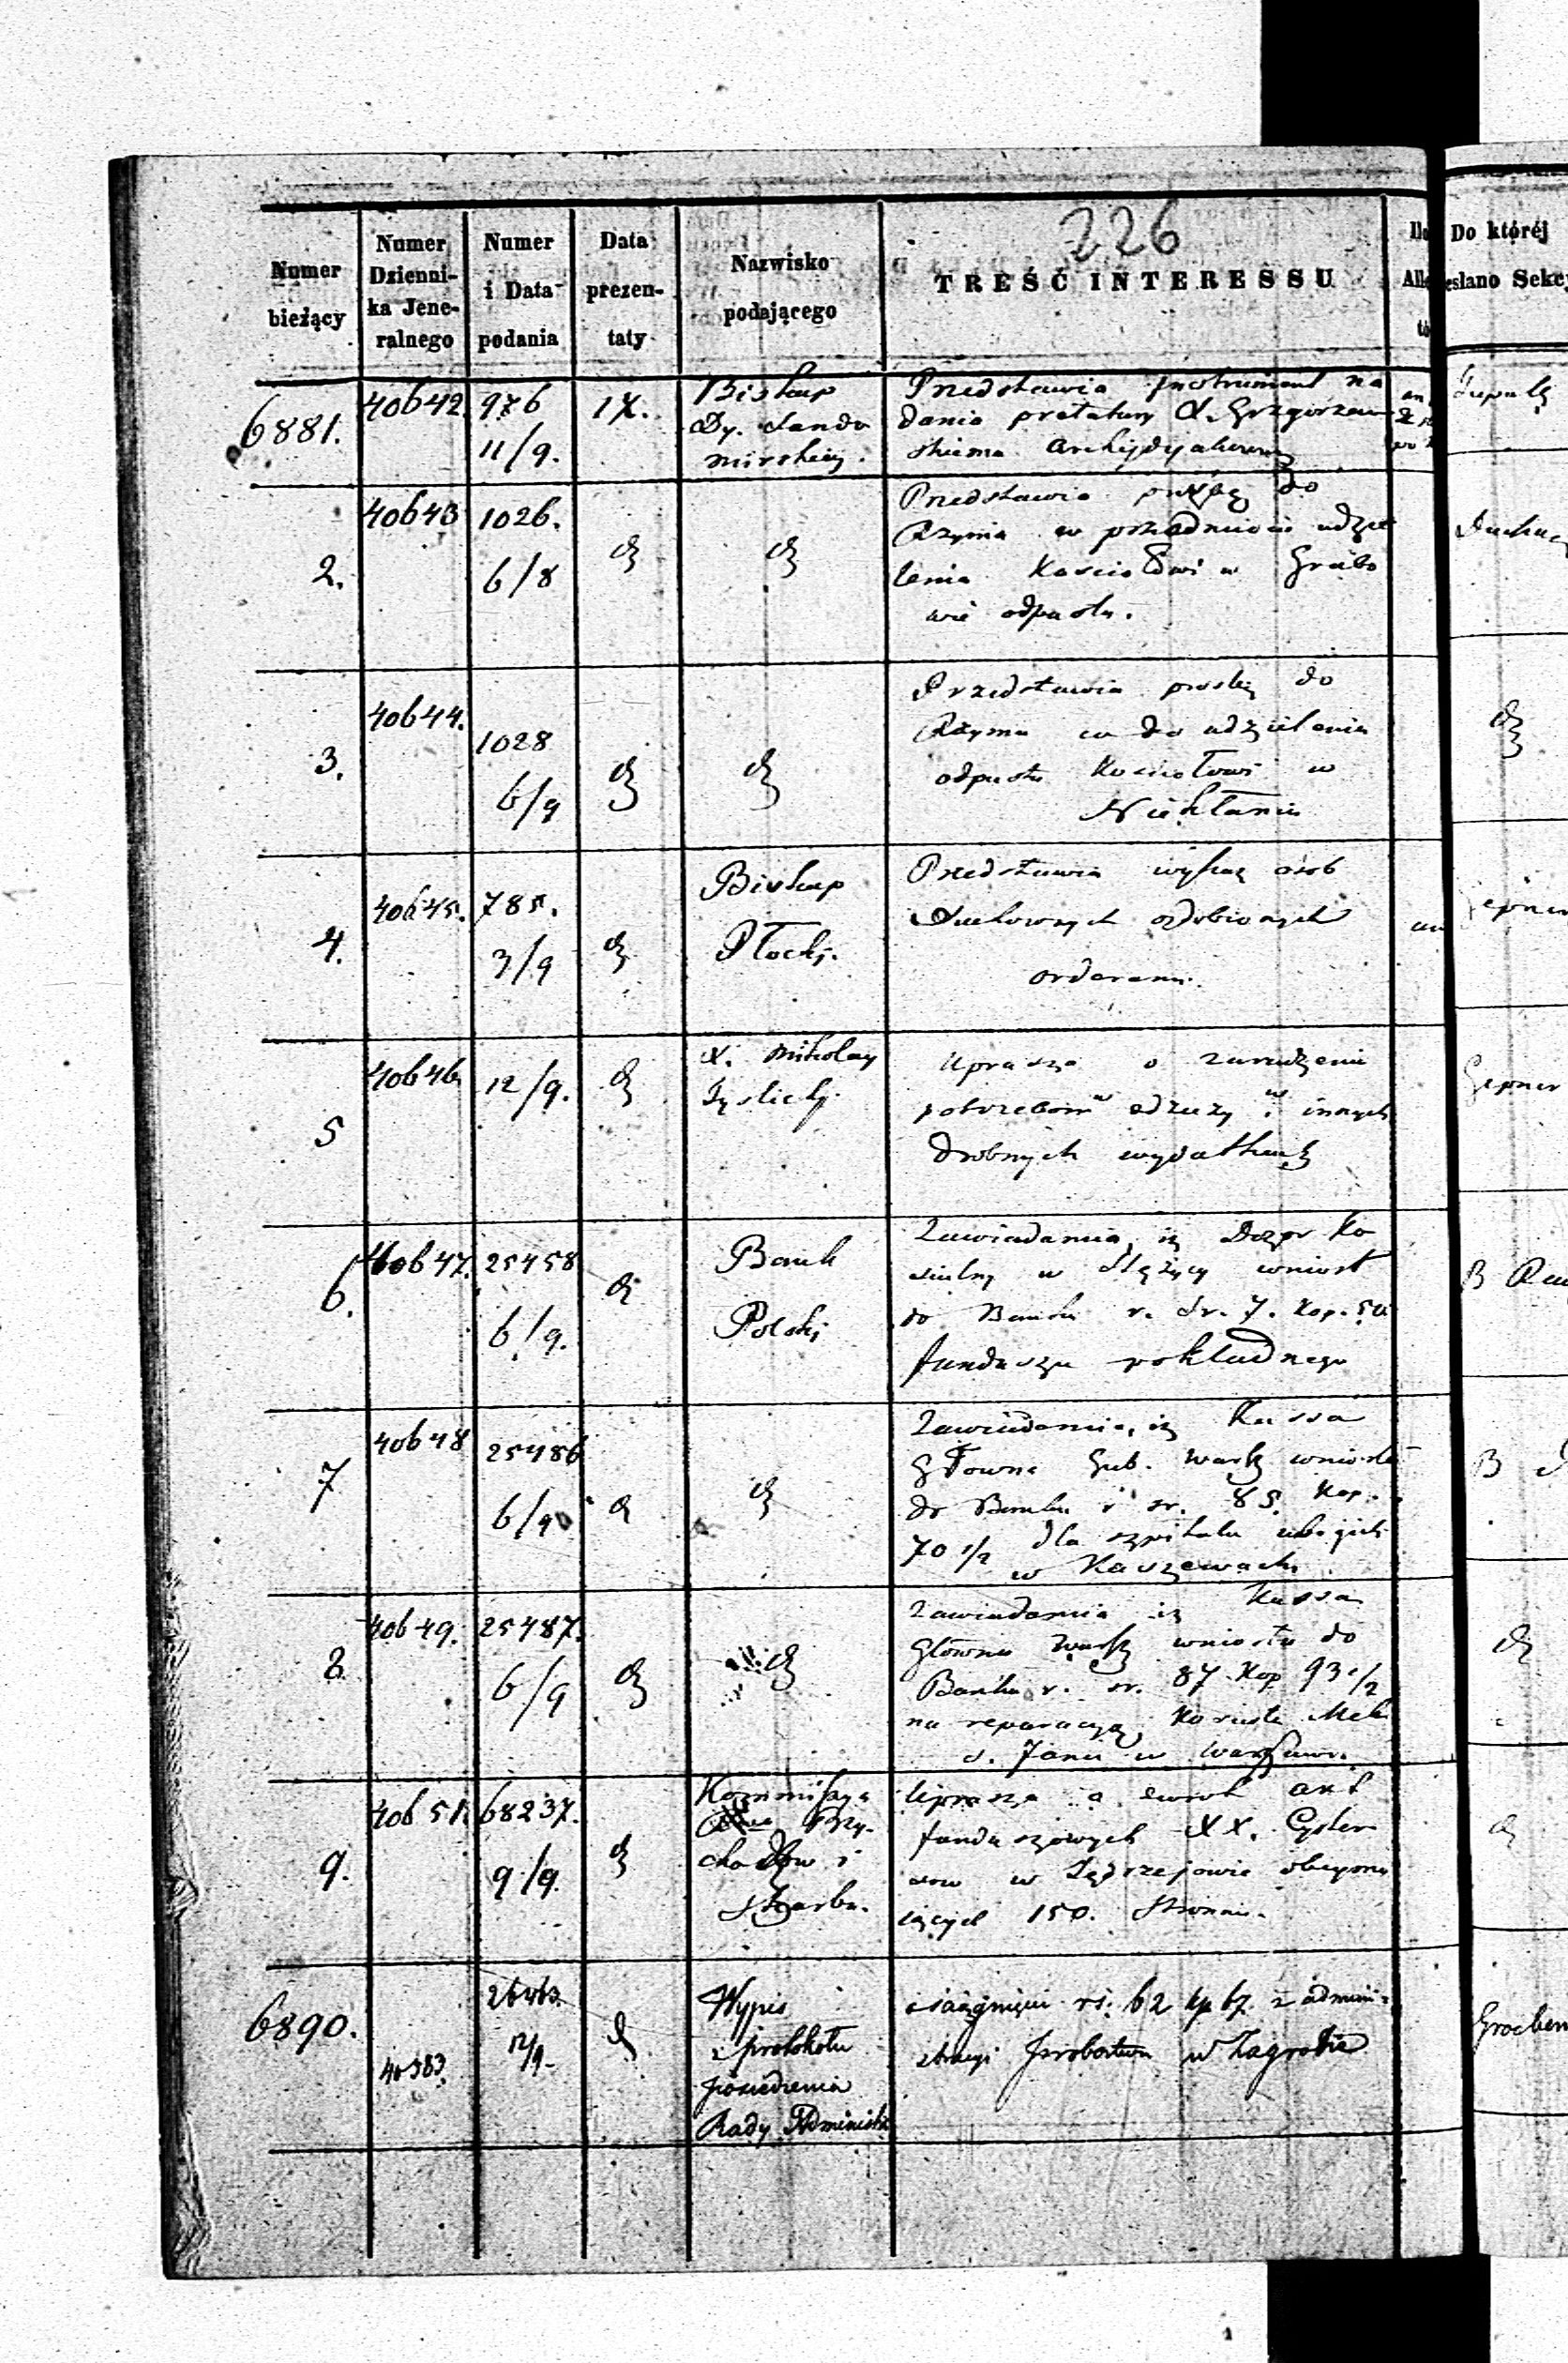 226
Numer bieżący
Numer Dzienni- ka Jene- ralnego
Numer i Data podania
Data prezen- taty
Nazwisko podającego
TREŚĆ INTERESSU
Do któréj
esłano Sekcy
6881.
40642.
976
11/9.
17.
Biskup
Dy. Sando
mirskiej.
Przedstawia instrument na
dania prałatury X. Grzegorzew
skiemu Archidyakonowi
2.
40643
1026.
6/8
Przedstawia prośbę do
Rzymu w przedmiocie udzie
lenia Kościołowi w Grabo
wie odpustu.
3.
40644.
1028
6/9
Przedstawia prośbę do
Rzymu w do udzielenia
odpustu Kościołowi w
Niekłaniu
4.
40645.
785.
3/9
Biskup
Płocki.
Przedstawia wykaz osób
Duchownych ozdobionych
orderami.
5
40646
12/9.
X. Mikołay
Uprasza o zaradzenie
potrzebom w odzieży i w innych
drobnych wydatkach
Gepner
6.
40647.
25458
6/9.
Bank
Polski
Zawiadamia, iż Dozór Ko
ścielny w Stężycy wniósł
do Banku r. sr. 7. kop. 50
funduszu pokładnego
7
40648
25486
6/9
Zawiadamia, iż Kassa
Główna Gub. Warsz wniosła
do Banku r sr. 85 kop.
70 1/2 dla szpitala ubogich
w Kaszewach.
8
40649.
25487.
6/9
Zawiadamia iż Kassa
Główna Warsz wniosła do
Banku r. sr. 87 kop 93 1/2
na reparacyą Kościoła Met.
S. Jana w Warszawie.
9.
40651.
68237.
9/9.
Kommissya
Przy-
chodów i
Skarbu.
Uprasza o zwrot akt
funduszowych XX. Cyster
sów w Jędrzejowie obejmu
jących 150. stronnic.
6890.
40383.
26463.
12/9.
Wypis
z protokołu
posiedzenia
Rady Administr
ściągnięcie rs. 62 kp 67. z admini-
stracyi probostwa w Zagrobie